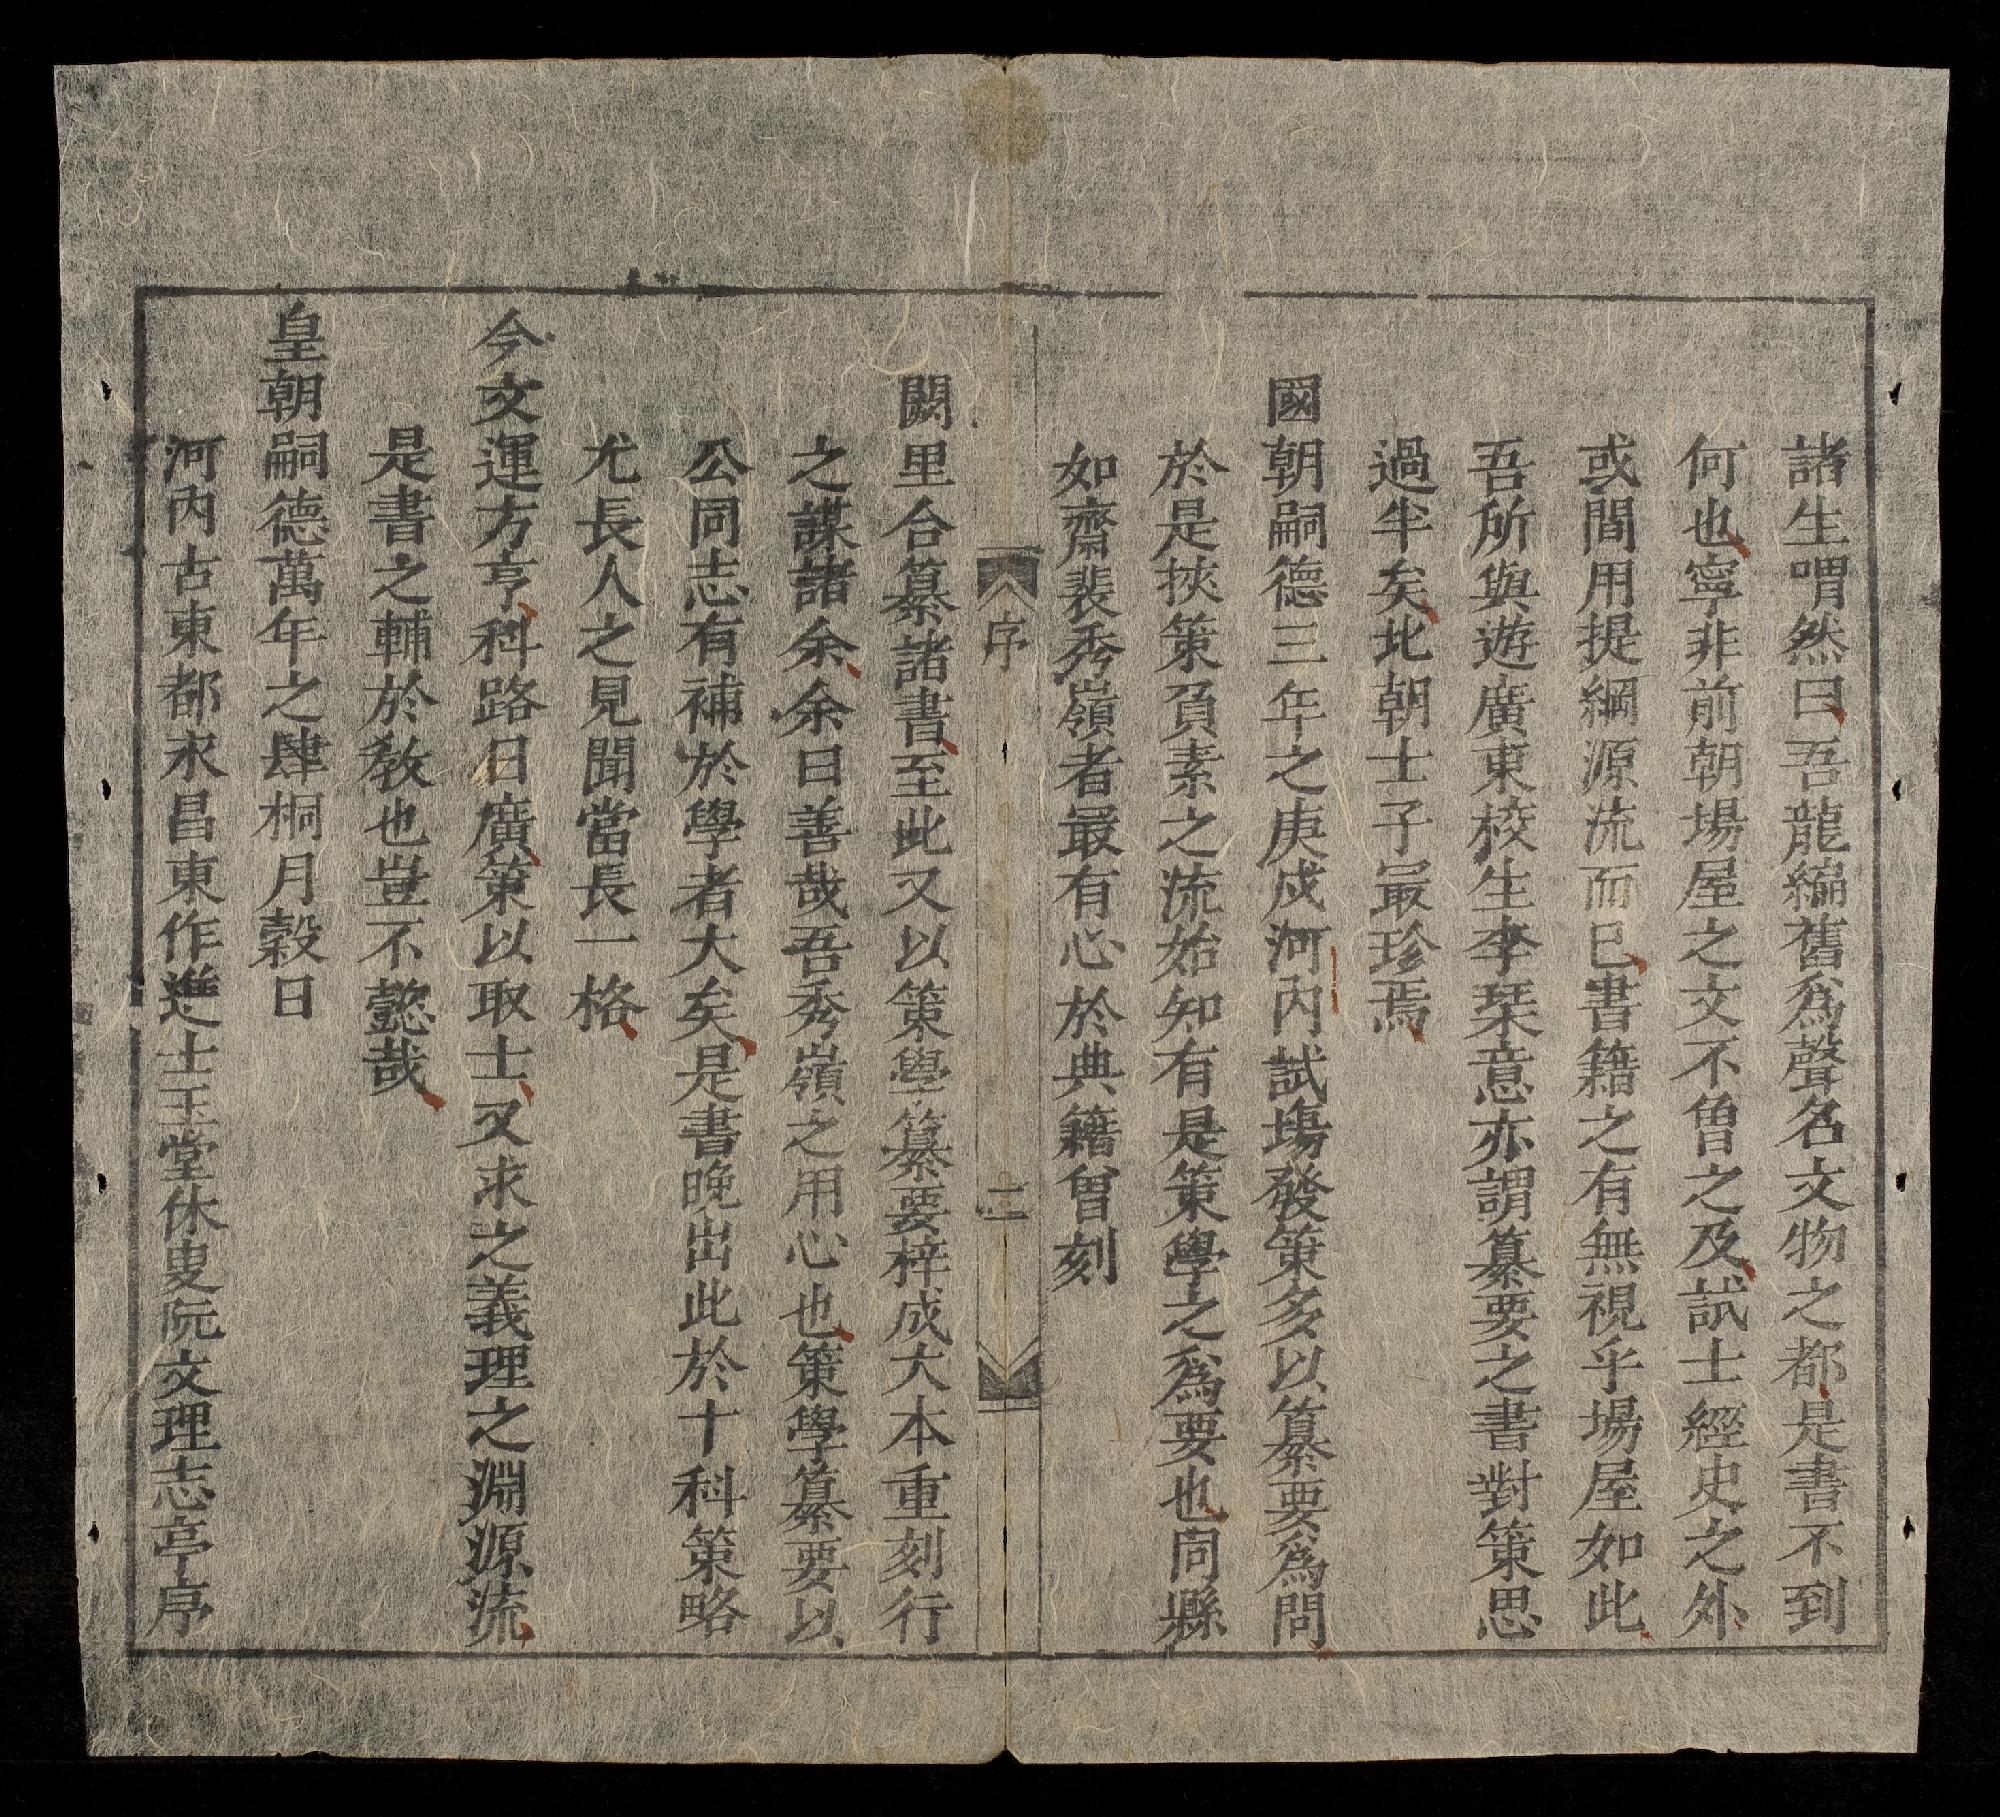 諸生喟然曰吾龍編舊為聲名文物之都是書不到
何也寧非前朝場屋之文不曾之及試士經史之外
或間用提綱源流而已書籍之有無視乎場屋如此
吾所與遊廣東校生李琹意亦謂纂要之書對策思
過半矣北朝士子最珍焉
國朝嗣德三年之庚戍河內試塲發策多以纂要為問
於是挾策負素之流始知有是策學之為要也同縣
如齋裴秀嶺者最有心於典籍曾刻
序 二
闕里合纂諸書至此又以策學纂要梓成大本重刻行
之謀諸余余曰善哉吾秀嶺之用心也策學纂要以
公同志有補於學者大矣是書晚出此於十科策略
尤長人之見聞當長一格
今文運方亨科路日廣策以取士又求之義理之淵源流
是書之輔於教也豈不懿哉
皇朝嗣德萬年之肆桐月穀日
河內古東都永昌東作進士玉堂休叟阮文理志亭序